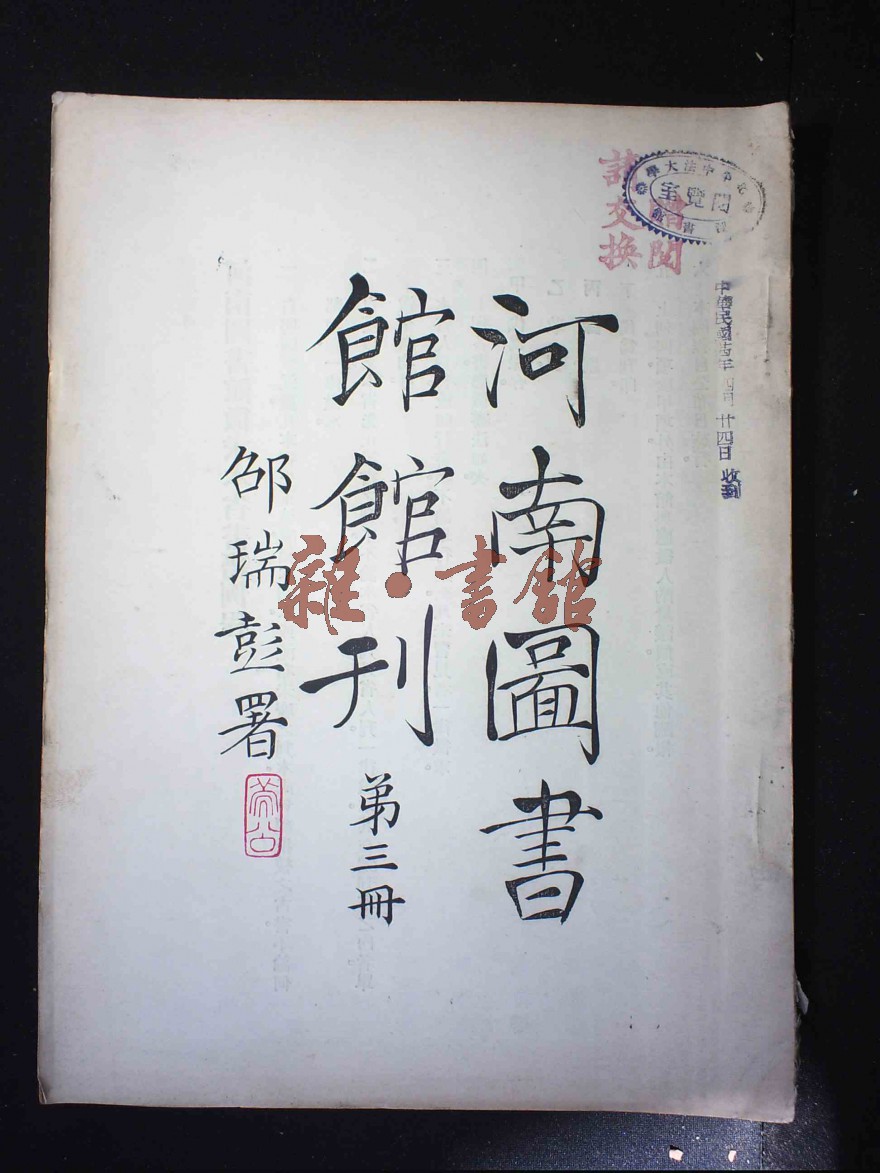 河南圖書
館館刊
第三冊
邵瑞彭署
贈閱
請交換
中法大學
閱覽室
中華民國
年
月廿四日
收到
雜·書館